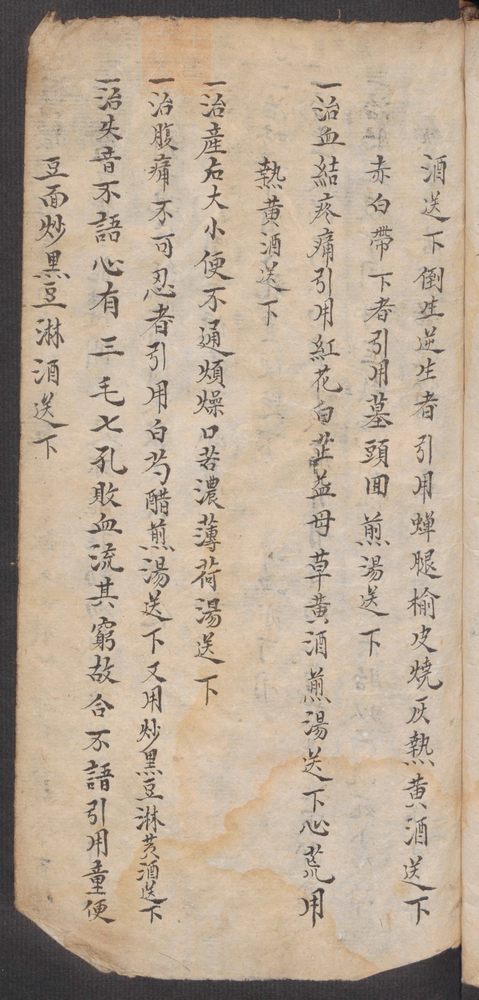 酒送下倒生逆生者引用蟬腿榆皮燒灰熱黃酒送下
赤白帶下者引用墓頭回煎湯送下
一治血結疼痛引用紅花白芷益母草黃酒煎湯送下心荒用
熱黃酒送下
一治産右大小便不通煩燥口若濃薄荷湯送下
一治腹痛不可忍者引用白芍醋煎湯送下又用炒黑豆淋黃酒送下
一治失音不語心有三毛七孔敗血流其竅故合不語引用童便
豆面炒黑豆淋酒送下